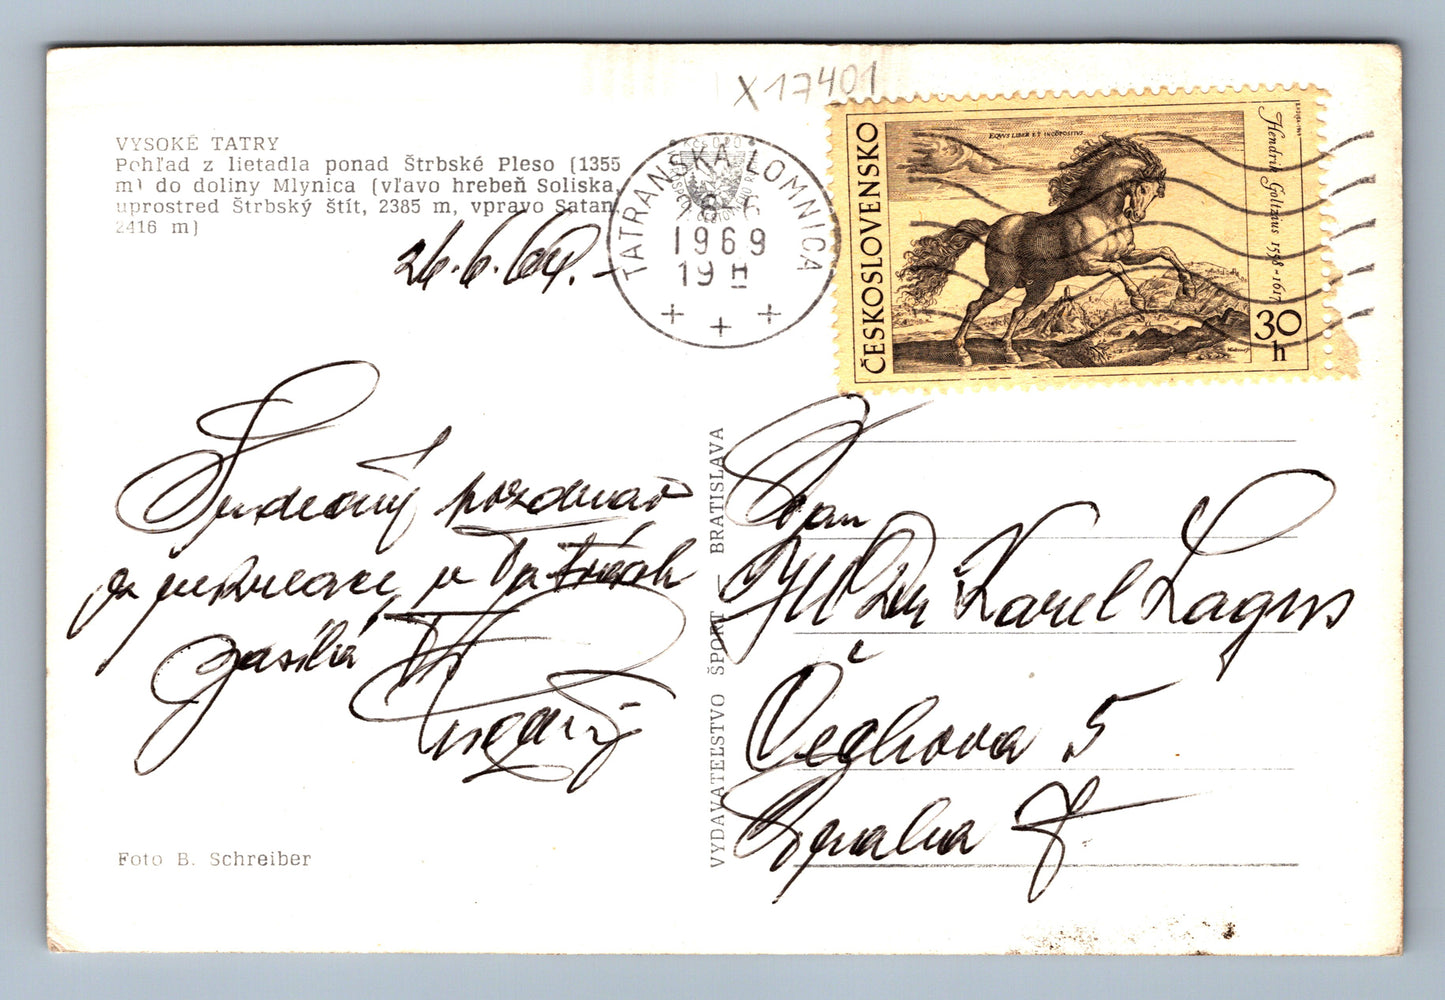 X17401
VYSOKÉ TATRY
Pohľad z lietadla ponad Štrbské Pleso (1355
m) do doliny Mlynica (vľavo hrebeň Soliska,
uprostred Štrbský štít, 2385 m, vpravo Satan,
2416 m)
TATRANSKÁ LOMNICA
1969
19 H
ČESKOSLOVENSKO
EQVUS LIBER ET INCOMPOSITUS
Hendrik Goltzius 1558-1617
30
h
Srdečný pozdrav
z rekreace v Tatrách
zasílá
Pan
JUDr Karel Lagus
Čechova 5
Praha 7.
VYDAVATEĽSTVO ŠPORT – BRATISLAVA
Foto B. Schreiber